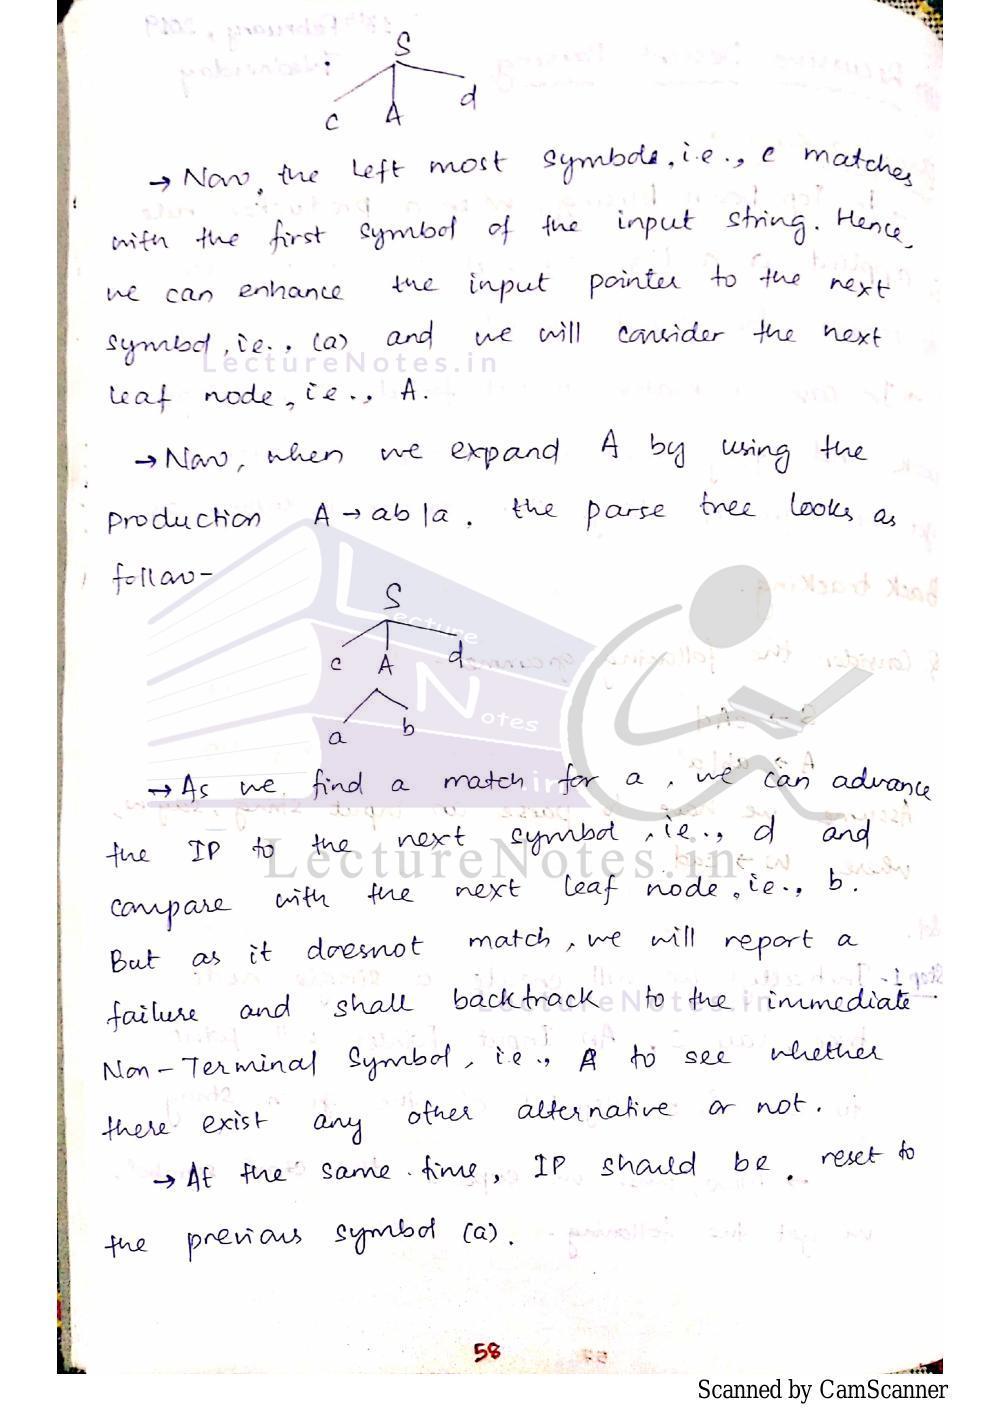 S
c A d
→ Now, the left most symbols, i.e., c matches
with the first symbol of the input string. Hence,
we can enhance the input pointer to the next
symbol, i.e., (a) and we will consider the next
LectureNotes.in
leaf node, i.e., A.
→ Now, when we expand A by using the
production A → ab|a, the parse tree looks as
follow-
S
c A d
a b
Lecture
Notes
.in
→ As we find a match for a, we can advance
the IP to the next symbol, i.e., d and
LectureNotes.in
compare with the next leaf node, i.e., b.
But as it doesnot match, we will report a
failure and shall backtrack to the immediate
LectureNotes.in
Non-Terminal Symbol, i.e., A to see whether
there exist any other alternative or not.
→ At the same time, IP should be reset to
the previous symbol (a).
58
Scanned by CamScanner